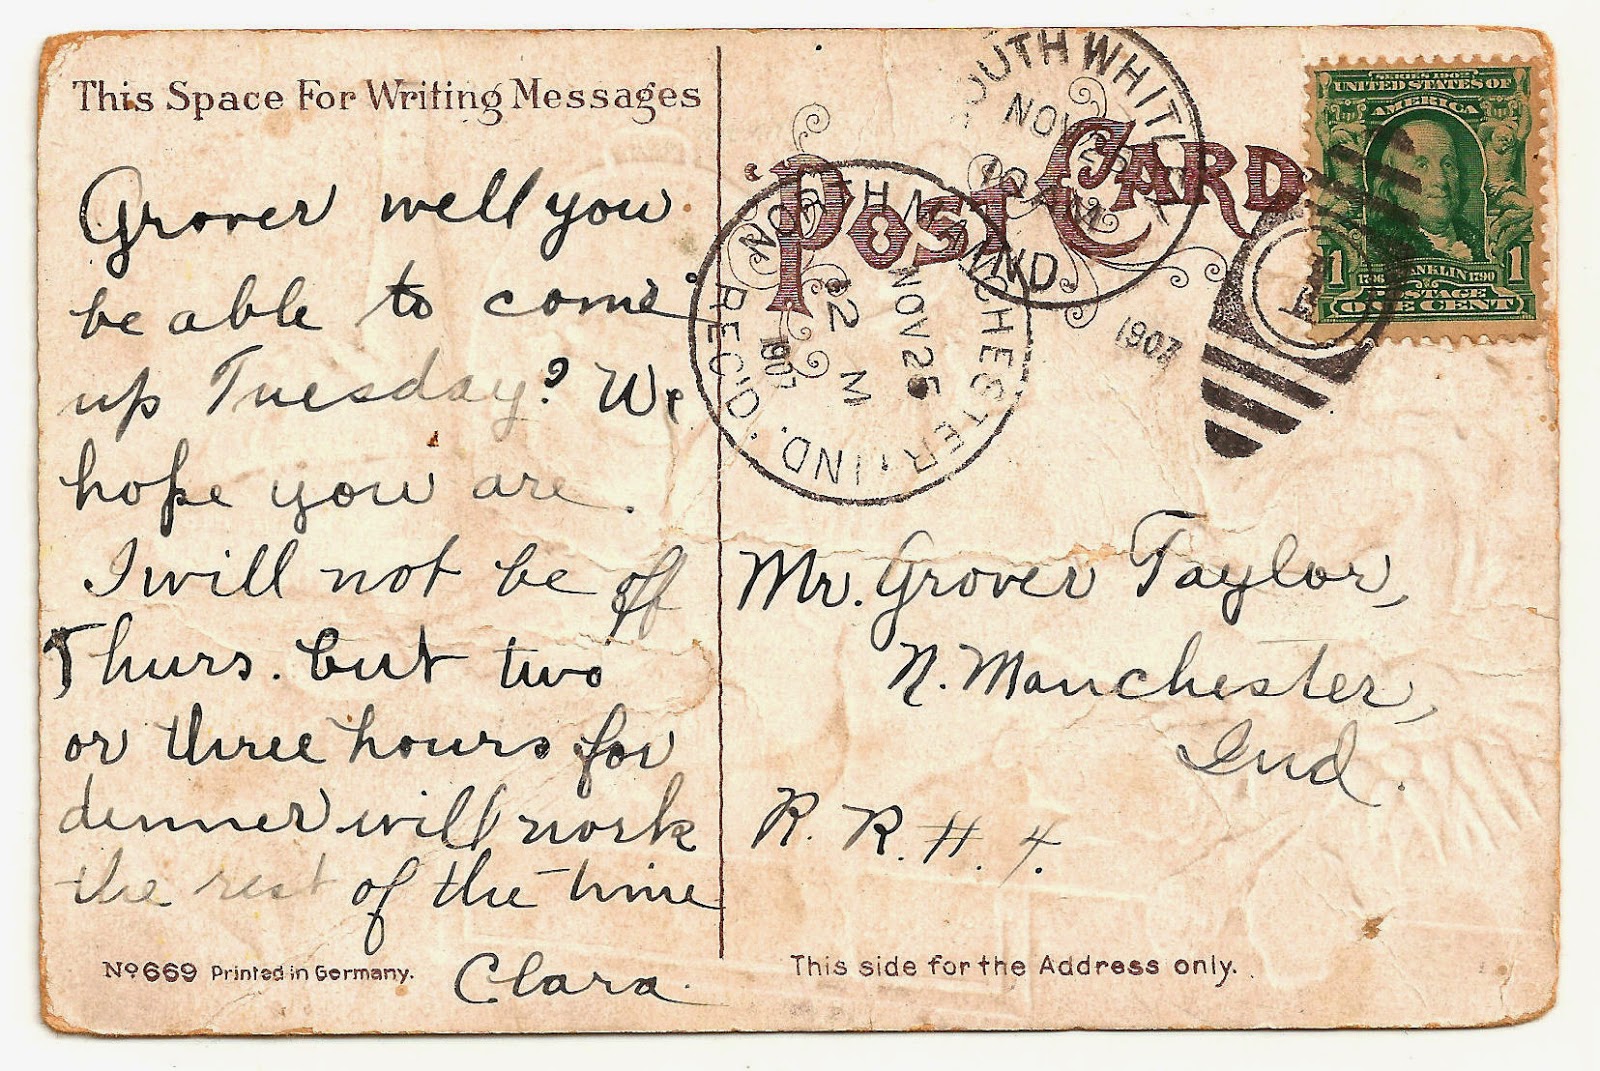 This Space For Writing Messages
Grover well you
be able to come
up Tuesday? We
hope you are.
I will not be off
Thurs. but two
or three hours for
dinner will work
the rest of the time
Clara
No 669 Printed in Germany.
POST CARD
SOUTH WHITLEY
NOV 25
AM
IND.
1907
NORTH MANCHESTER, IND.
NOV 25
12 M
1907
REC'D.
SERIES 1902
UNITED STATES OF
AMERICA
1706 FRANKLIN 1790
1 POSTAGE 1
ONE CENT
Mr. Grover Taylor,
N. Manchester,
Ind.
R. R. #. 4.
This side for the Address only.